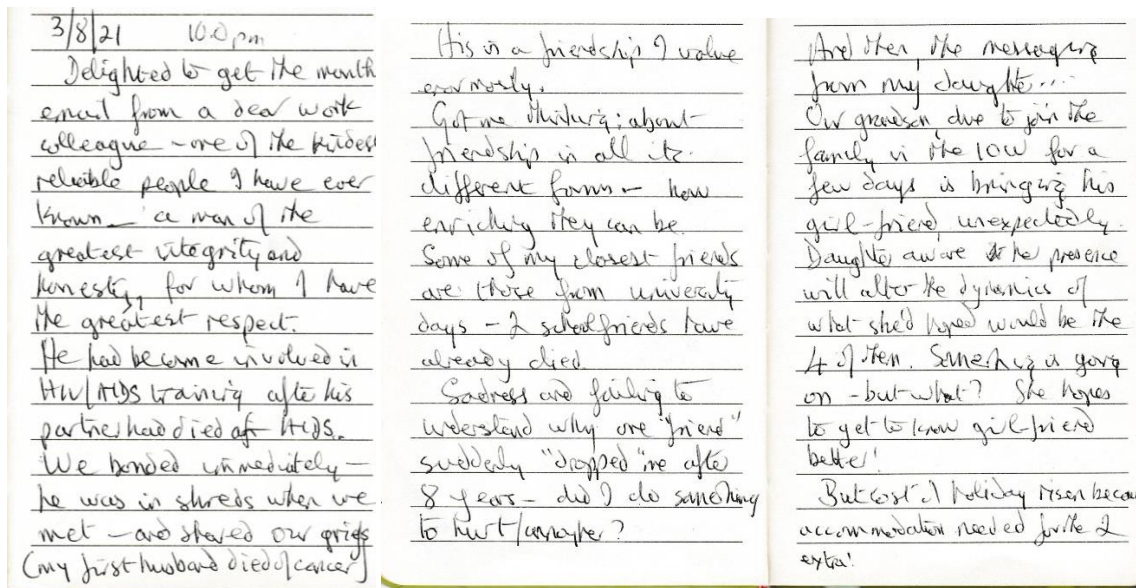 3/8/21 10.0pm
Delighted to get the month
email from a dear work
colleague - one of the kindest
reliable people I have ever
known - a man of the
greatest integrity and
honesty, for whom I have
the greatest respect.
He had become involved in
HIV/AIDS training after his
partner had died of AIDS.
We bonded immediately -
he was in shreds when we
met - and shared our griefs
(my first husband died of cancer)
This is a friendship I value
enormously.
Got me thinking: about
friendship in all its
different forms - how
enriching they can be.
Some of my closest friends
are those from university
days - 2 schoolfriends have
already died.
Sadness and failing to
understand why one "friend"
suddenly "dropped" me after
8 years - did I do something
to hurt/annoy her?
And then, the messaging
from my daughter...
Our grandson, due to join the
family in the IOW for a
few days is bringing his
girl-friend, unexpectedly.
Daughter aware the presence
will alter the dynamics of
what she'd hoped would be the
4 of them. Something is going
on - but what? She hopes
to get to know girl-friend
better!
But cost of holiday risen becau
accommodation needed for the 2
extra!